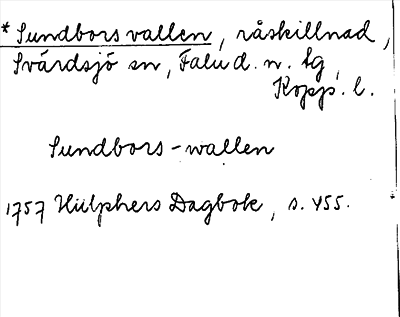 * Sundbors vallen, råskillnad,
Svärdsjö sn, Falu d. n. tg,
Kopp. l.
Sundbors-wallen
1757 Hülphers Dagbok, s. 455.